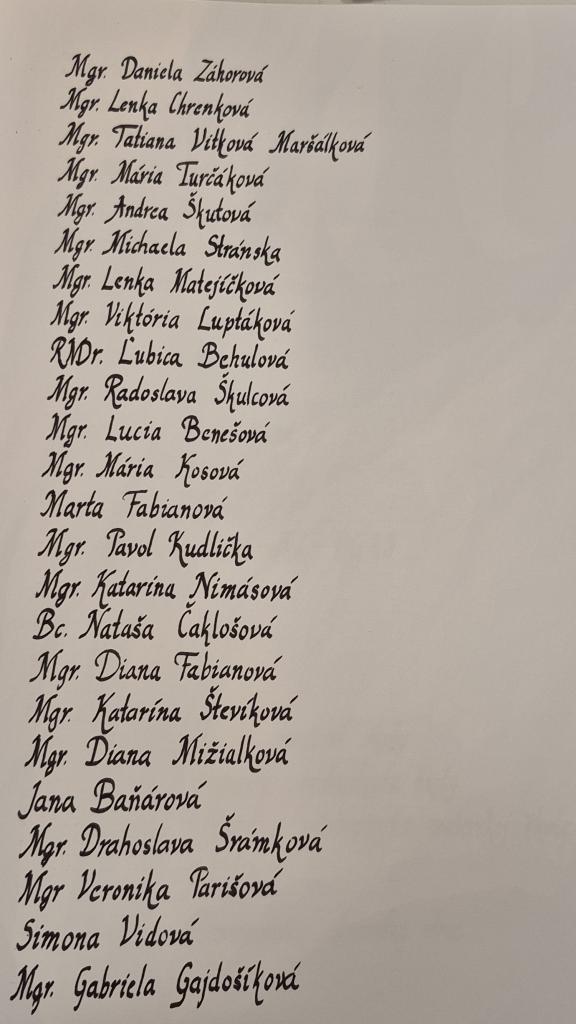 Mgr. Daniela Záhorová
Mgr. Lenka Chrenková
Mgr. Tatiana Vitková Maršálková
Mgr. Mária Turčáková
Mgr. Andrea Škutová
Mgr. Michaela Stránska
Mgr. Lenka Matejíčková
Mgr. Viktória Luptáková
RNDr. Ľubica Behulová
Mgr. Radoslava Škulcová
Mgr. Lucia Benešová
Mgr. Mária Kosová
Marta Fabianová
Mgr. Pavol Kudlička
Mgr. Katarína Nimásová
Bc. Nataša Čaklošová
Mgr. Diana Fabianová
Mgr. Katarína Števíková
Mgr. Diana Mižialková
Jana Baňárová
Mgr. Drahoslava Šrámková
Mgr Veronika Parišová
Simona Vidová
Mgr. Gabriela Gajdošíková